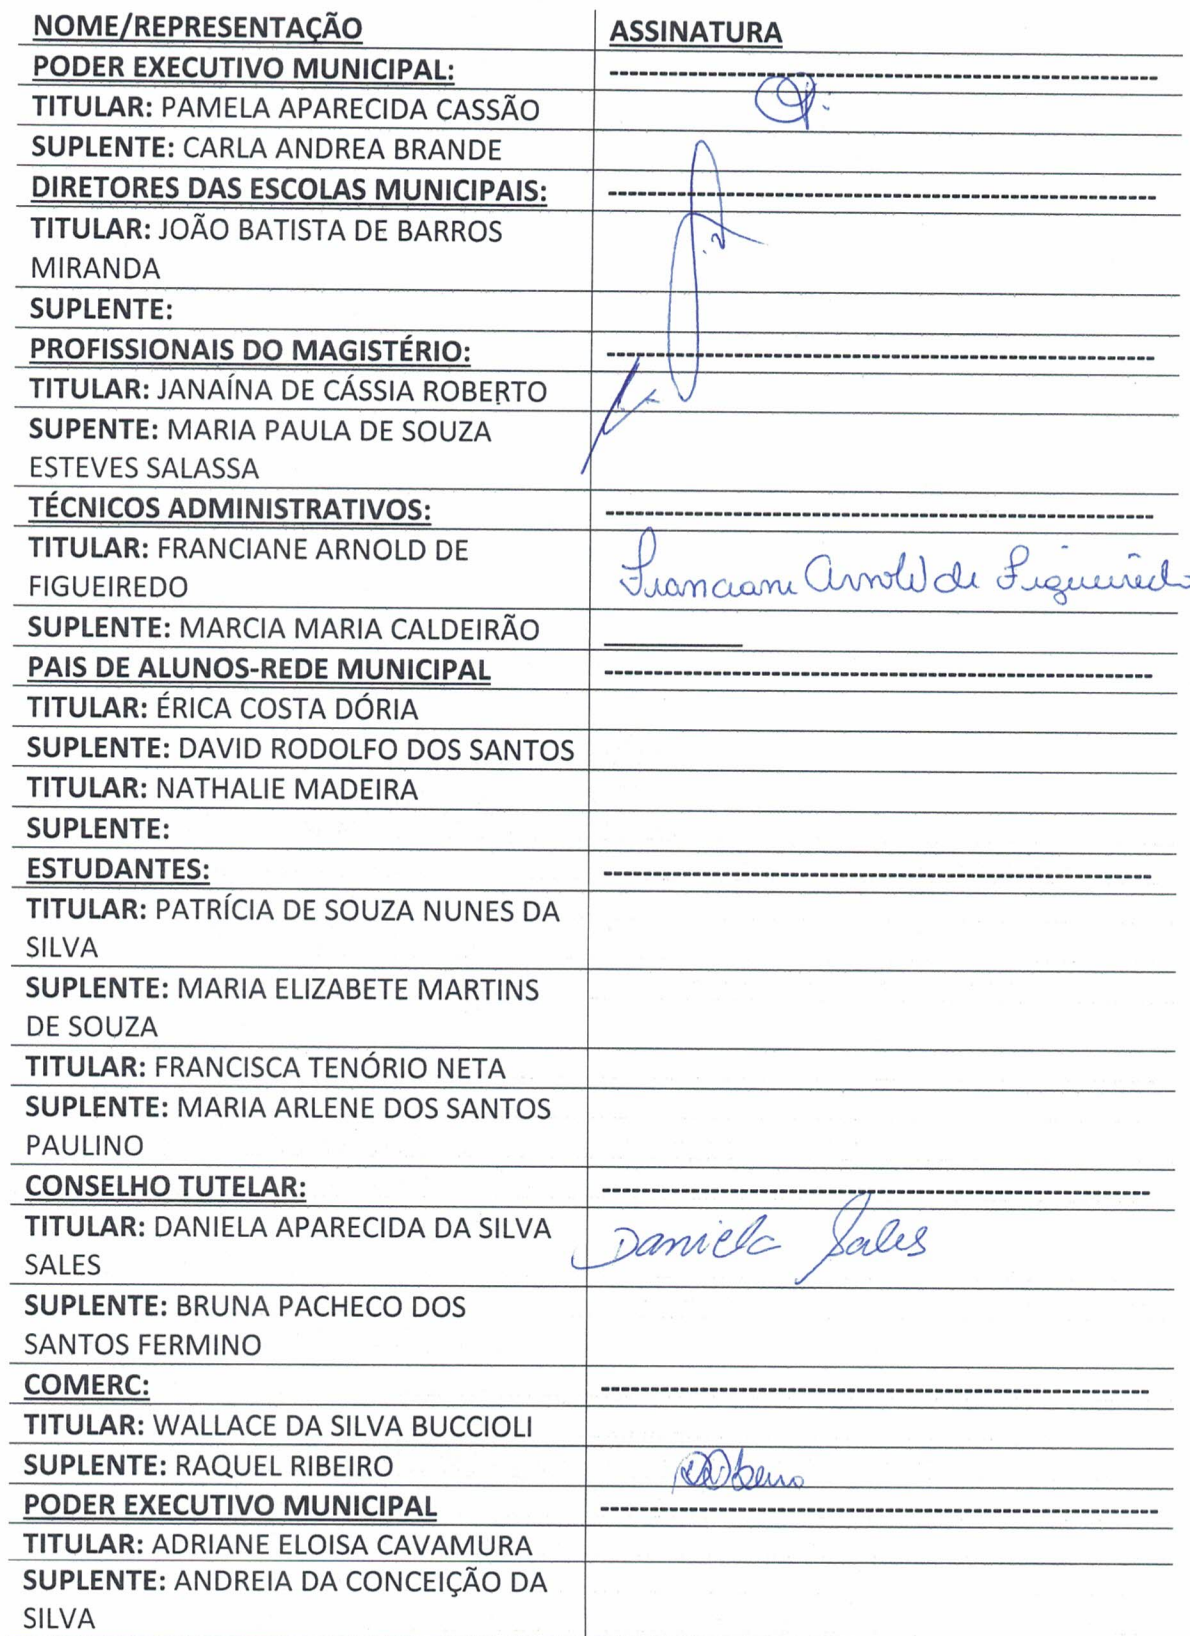 NOME/REPRESENTAÇÃO ASSINATURA
PODER EXECUTIVO MUNICIPAL: --------------------------------------------------------
TITULAR: PAMELA APARECIDA CASSÃO
SUPLENTE: CARLA ANDREA BRANDE
DIRETORES DAS ESCOLAS MUNICIPAIS: --------------------------------------------------------
TITULAR: JOÃO BATISTA DE BARROS
MIRANDA
SUPLENTE:
PROFISSIONAIS DO MAGISTÉRIO: --------------------------------------------------------
TITULAR: JANAÍNA DE CÁSSIA ROBERTO
SUPENTE: MARIA PAULA DE SOUZA
ESTEVES SALASSA
TÉCNICOS ADMINISTRATIVOS: --------------------------------------------------------
TITULAR: FRANCIANE ARNOLD DE
FIGUEIREDO Franciane Arnold de Figueiredo
SUPLENTE: MARCIA MARIA CALDEIRÃO ______________
PAIS DE ALUNOS-REDE MUNICIPAL --------------------------------------------------------
TITULAR: ÉRICA COSTA DÓRIA
SUPLENTE: DAVID RODOLFO DOS SANTOS
TITULAR: NATHALIE MADEIRA
SUPLENTE:
ESTUDANTES: --------------------------------------------------------
TITULAR: PATRÍCIA DE SOUZA NUNES DA
SILVA
SUPLENTE: MARIA ELIZABETE MARTINS
DE SOUZA
TITULAR: FRANCISCA TENÓRIO NETA
SUPLENTE: MARIA ARLENE DOS SANTOS
PAULINO
CONSELHO TUTELAR: --------------------------------------------------------
TITULAR: DANIELA APARECIDA DA SILVA Daniela Sales
SALES
SUPLENTE: BRUNA PACHECO DOS
SANTOS FERMINO
COMERC: --------------------------------------------------------
TITULAR: WALLACE DA SILVA BUCCIOLI
SUPLENTE: RAQUEL RIBEIRO
PODER EXECUTIVO MUNICIPAL --------------------------------------------------------
TITULAR: ADRIANE ELOISA CAVAMURA
SUPLENTE: ANDREIA DA CONCEIÇÃO DA
SILVA